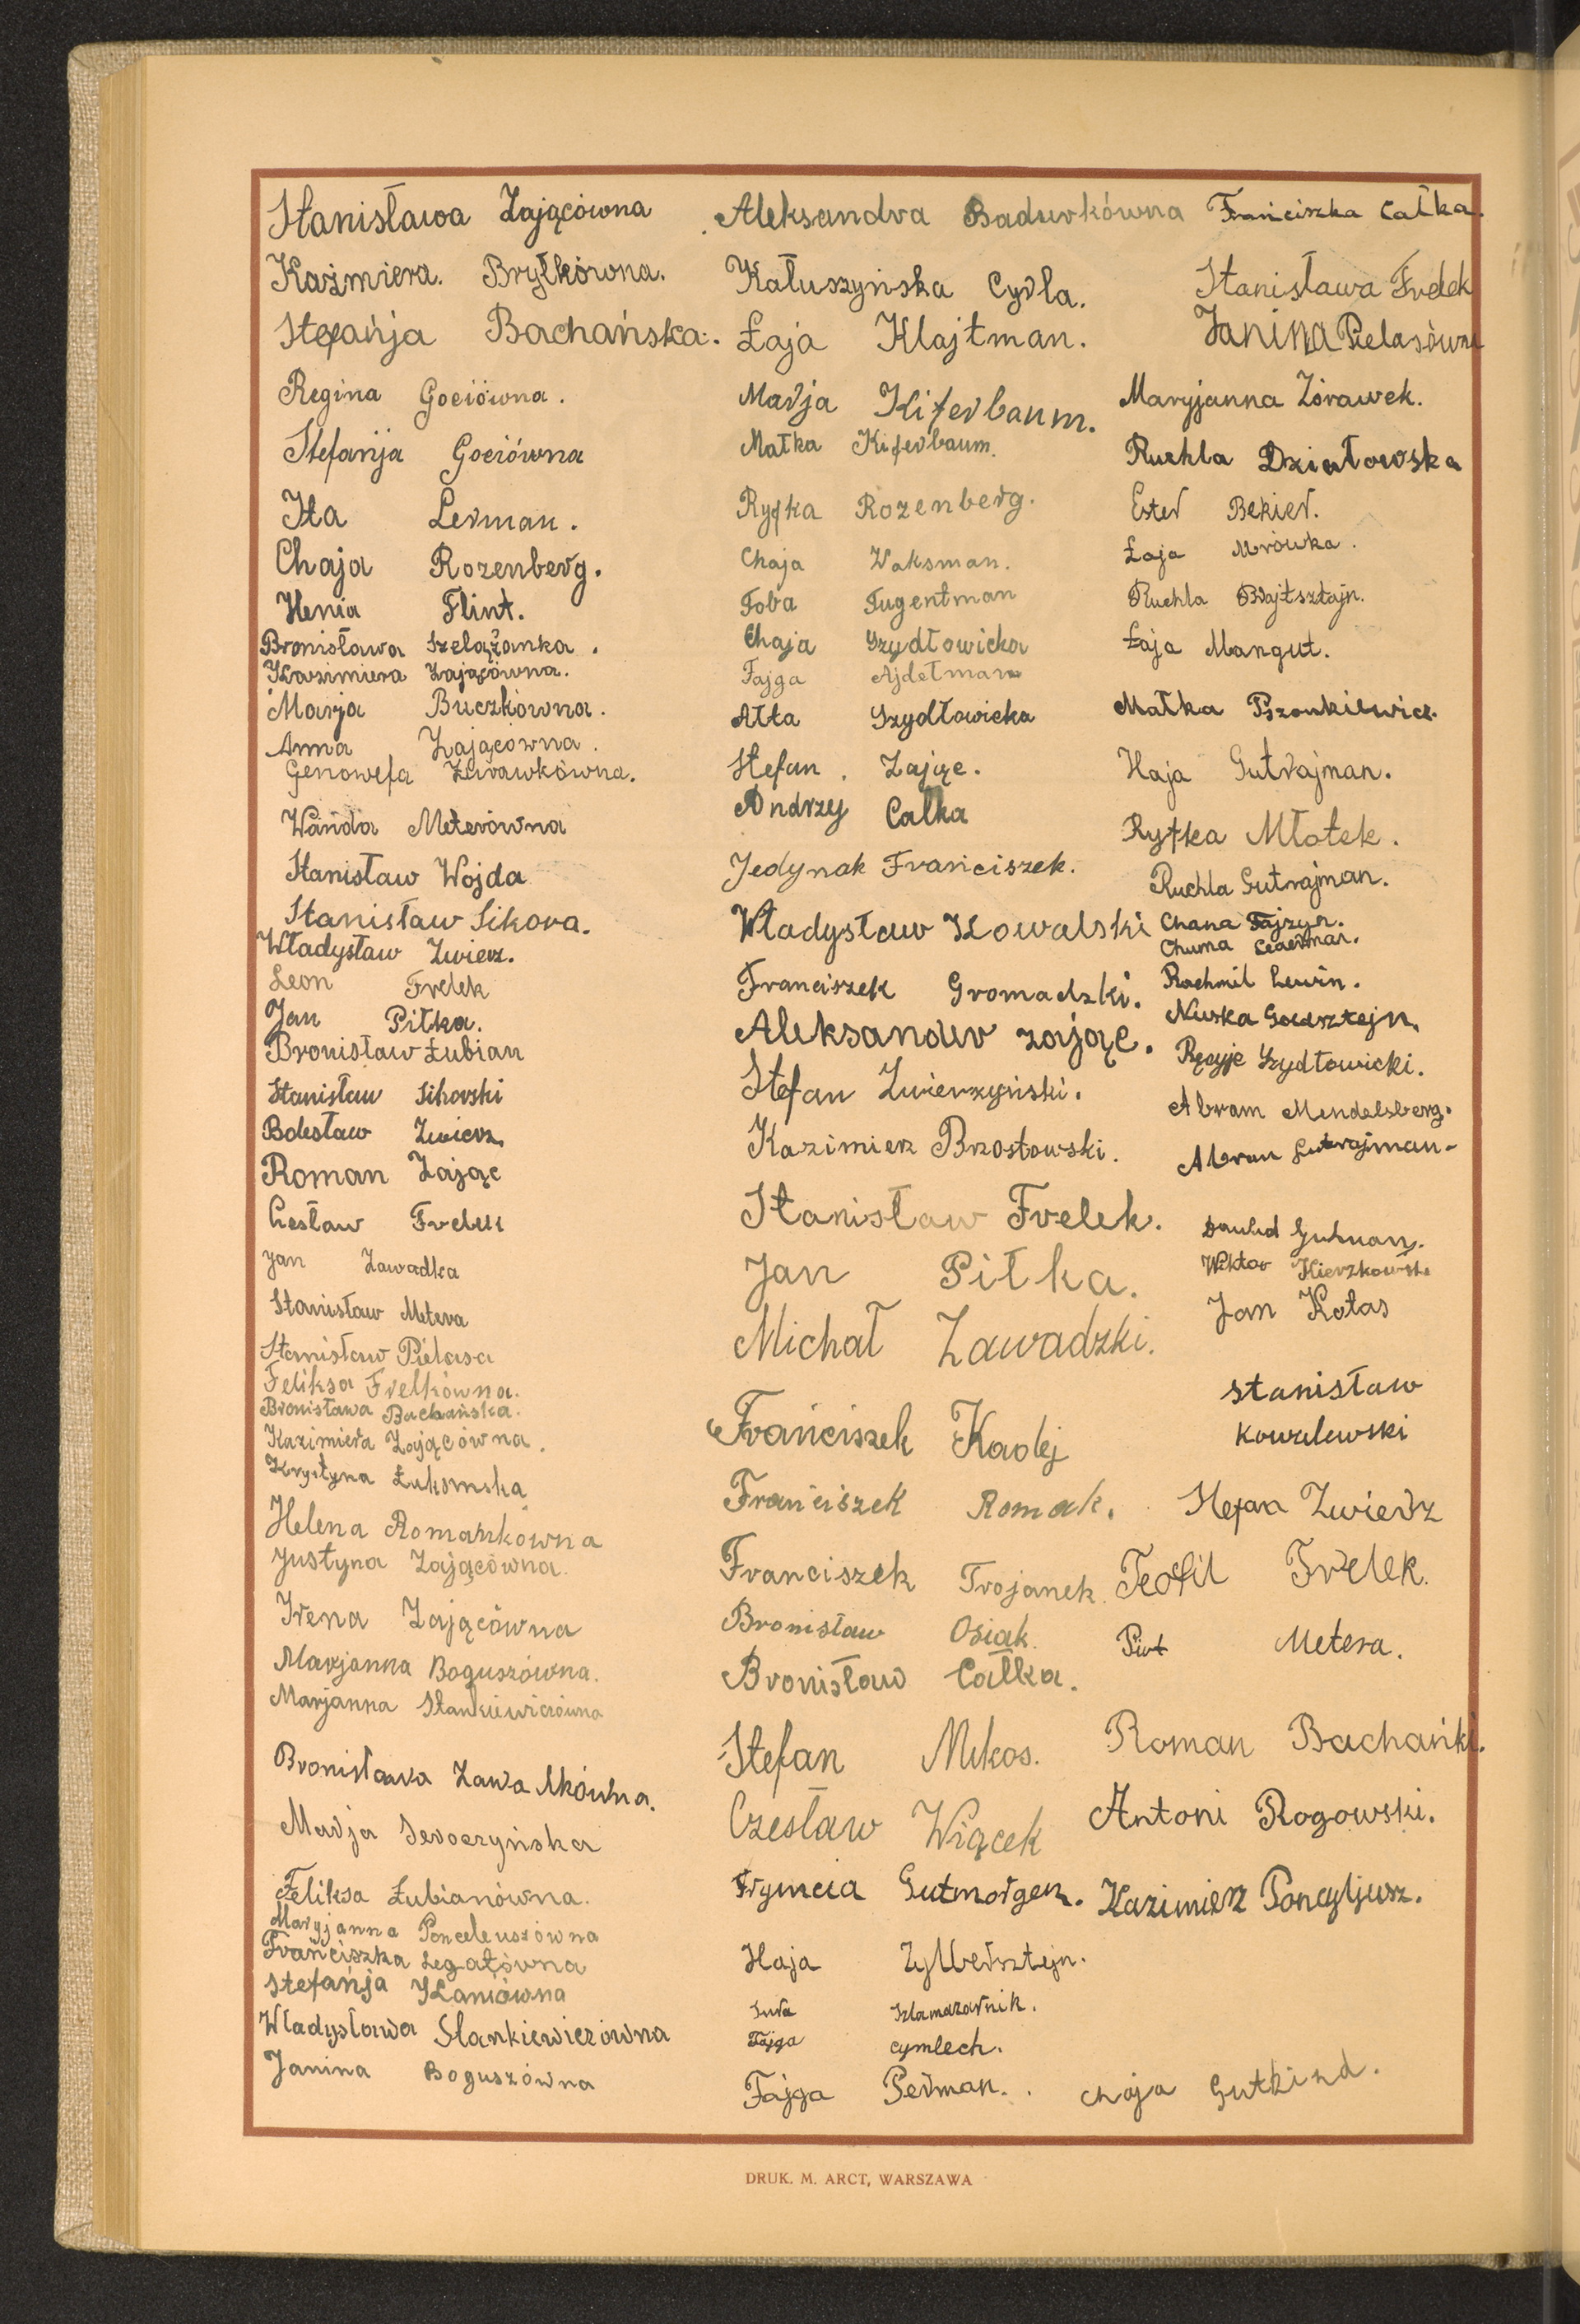 Stanisława Zającówna
Kazimiera. Bryłkówna.
Stefańja Bachańska.
Regina Gociówna.
Stefanija Gociówna
Ita Lerman.
Chaja Rozenberg.
Henia Flint.
Bronisława Szelążanka.
Kazimiera Zającówna.
Marja Buczkówna.
Anna Zającówna.
Genowefa Żurawkówna.
Wanda Meterówna
Stanisław Wojda
Stanisław Sikora.
Władysław Zwierz.
Leon Frelek
Jan Piłka.
Bronisław Łubian
Stanisław Sikorski
Bolesław Zwierz.
Roman Zając
Czesław Frelek
Jan Zawadka
Stanisław Metera
Stanisław Pielasa
Feliksa Frelkówna.
Bronisława Bachańska.
Kazimiera Zającówna.
Krystyna Łukomska
Helena Romankówna
Justyna Zającówna.
Irena Zającówna
Marjanna Boguszówna.
Marjanna Stankiewiczówna
Bronisława
Marja
Feliksa Łubianówna.
Maryjanna Ponceleuszówna
Frańciszka Legatówna
Stefańja Kaniówna
Władysława Stankiewiczówna
Janina Boguszówna
Aleksandra Badurkówna
Kałuszyńska Cyrla.
Łaja Klajtman.
Marja Kiferbaum.
Małka Kiferbaum.
Ryfka Rozenberg.
Chaja Waksman.
Toba Fugentman
Chaja Szydłowicka
Fajga Ajdelman
Ałta Szydłowicka
Stefan Zając.
Andrzy Całka
Jedynak Frańciszek.
Władysław Kowalski
Franciszek Gromadzki.
Aleksander zając.
Stefan Zwierzyński.
Kazimierz Brzostowski.
Stanisław Frelek.
Jan Piłka.
Michał Zawadzki.
Frańciszek Kadej
Frańciszek Romak.
Franciszek Trojanek.
Bronisław Osiak.
Bronisław Całka.
Stefan Mikos.
Czesław Wiącek
Frymcia Gutmorgen.
Haja Zylbersztejn.
Sura Szlamazarnik.
Fajga cymlech.
Fajga Perman.
Frańciszka Całka.
Stanisława Frelek
Janina Pielasówna
Maryjanna Żórawek.
Ruchla Działowska
Ester Bekier.
Łaja Mrówka.
Ruchla Blajtsztajn.
Łaja Mangut.
Małka
Haja Gutrajman.
Ryfka Młotek.
Ruchla Gutrajman.
Chana Fajzyn.
Chuma
Rachmil Lewin.
Szydłowicki.
Abram Mendelsberg.
Abram Gutrajman.
Wiktor Kierzkowski
Jan Kotas
Stanisław
Kowalewski
Stefan Zwierz
Teofil Frelek.
Piotr Metera.
Roman Bachański.
Antoni Rogowski.
Kazimierz Poncyljusz.
Chaja Gutkind.
DRUK. M. ARCT, WARSZAWA